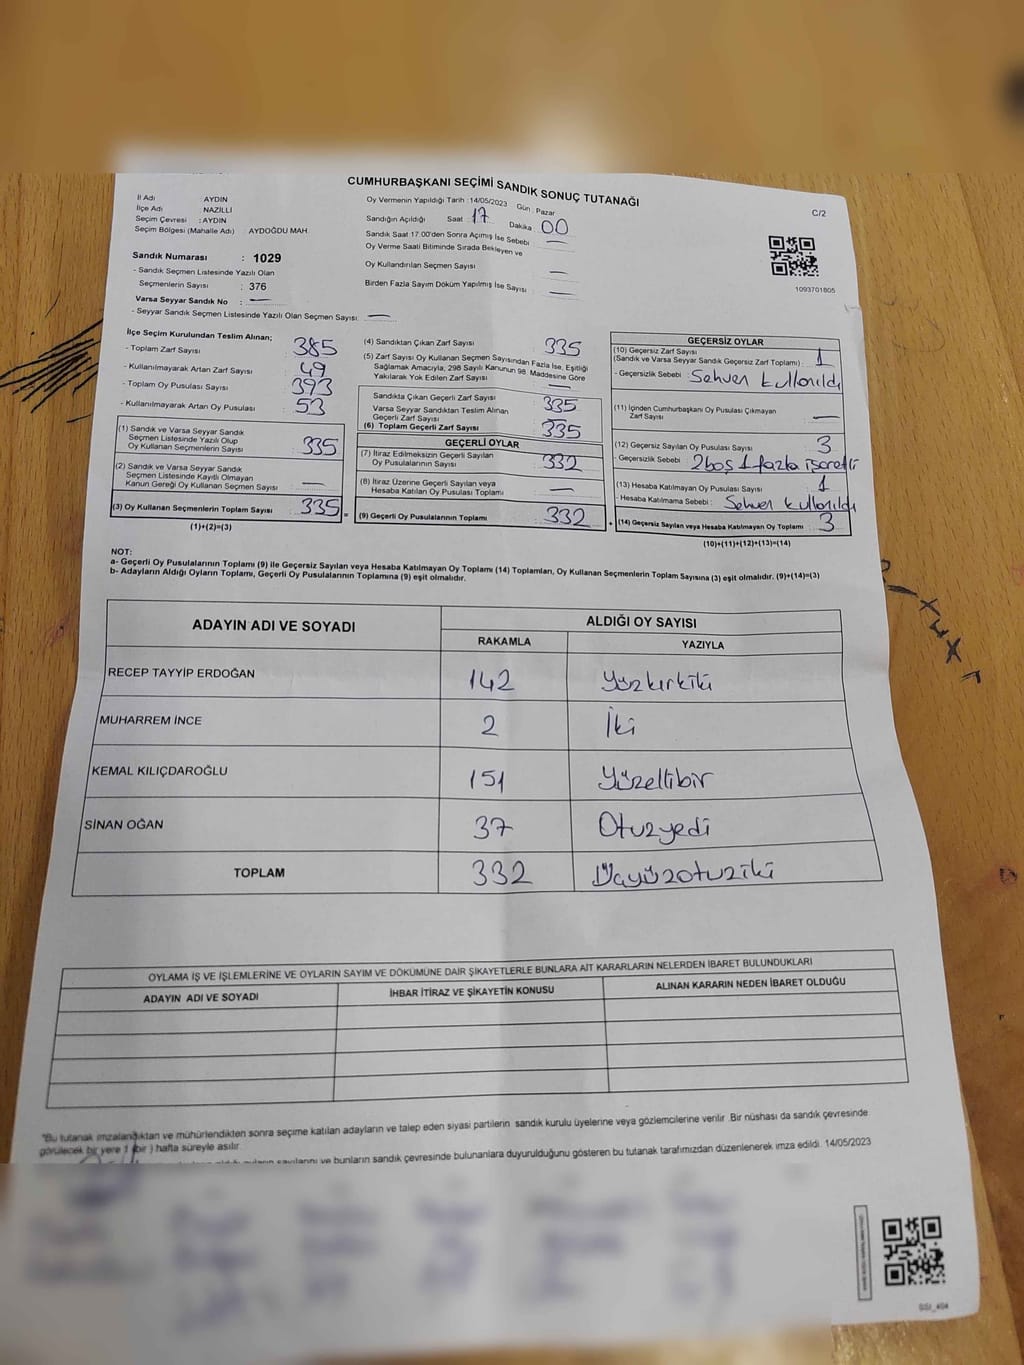 CUMHURBAŞKANI SEÇİMİ SANDIK SONUÇ TUTANAĞI
C/2
İl Adı : AYDIN
İlçe Adı : NAZİLLİ
Seçim Çevresi : AYDIN
Seçim Bölgesi (Mahalle Adı) AYDOĞDU MAH.
Sandık Numarası : 1029
- Sandık Seçmen Listesinde Yazılı Olan
Seçmenlerin Sayısı : 376
Varsa Seyyar Sandık No : —
- Seyyar Sandık Seçmen Listesinde Yazılı Olan Seçmen Sayısı: —
Oy Vermenin Yapıldığı Tarih :14/05/2023 Gün : Pazar
Sandığın Açıldığı Saat 17 Dakika 00
Sandık Saat 17.00'den Sonra Açılmış İse Sebebi —
Oy Verme Saati Bitiminde Sırada Bekleyen ve
Oy Kullandırılan Seçmen Sayısı —
Birden Fazla Sayım Döküm Yapılmış İse Sayısı —
1093701805
İlçe Seçim Kurulundan Teslim Alınan;
- Toplam Zarf Sayısı 385
- Kullanılmayarak Artan Zarf Sayısı 49
- Toplam Oy Pusulası Sayısı 393
- Kullanılmayarak Artan Oy Pusulası 53
(1) Sandık ve Varsa Seyyar Sandık
Seçmen Listesinde Yazılı Olup
Oy Kullanan Seçmenlerin Sayısı 335
(2) Sandık ve Varsa Seyyar Sandık
Seçmen Listesinde Kayıtlı Olmayan
Kanun Gereği Oy Kullanan Seçmen Sayısı —
(3) Oy Kullanan Seçmenlerin Toplam Sayısı 335 =
(1)+(2)=(3)
(4) Sandıktan Çıkan Zarf Sayısı 335
(5) Zarf Sayısı Oy Kullanan Seçmen Sayısından Fazla İse, Eşitliği
Sağlamak Amacıyla, 298 Sayılı Kanunun 98. Maddesine Göre
Yakılarak Yok Edilen Zarf Sayısı —
Sandıkta Çıkan Geçerli Zarf Sayısı 335
Varsa Seyyar Sandıktan Teslim Alınan
Geçerli Zarf Sayısı —
(6) Toplam Geçerli Zarf Sayısı 335
GEÇERLİ OYLAR
(7) İtiraz Edilmeksizin Geçerli Sayılan
Oy Pusulalarının Sayısı 332
(8) İtiraz Üzerine Geçerli Sayılan veya
Hesaba Katılan Oy Pusulası Toplamı —
(9) Geçerli Oy Pusulalarının Toplamı 332 +
GEÇERSİZ OYLAR
(10) Geçersiz Zarf Sayısı
(Sandık ve Varsa Seyyar Sandık Geçersiz Zarf Toplamı) : 1
- Geçersizlik Sebebi : Sehven kullanıldı
(11) İçinden Cumhurbaşkanı Oy Pusulası Çıkmayan
Zarf Sayısı —
(12) Geçersiz Sayılan Oy Pusulası Sayısı 3
- Geçersizlik Sebebi : 2boş 1 fazla işaretli
(13) Hesaba Katılmayan Oy Pusulası Sayısı 1
- Hesaba Katılmama Sebebi : Sehven kullanıldı
(14) Geçersiz Sayılan veya Hesaba Katılmayan Oy Toplamı 3
(10)+(11)+(12)+(13)=(14)
NOT:
a- Geçerli Oy Pusulalarının Toplamı (9) ile Geçersiz Sayılan veya Hesaba Katılmayan Oy Toplamı (14) Toplamları, Oy Kullanan Seçmenlerin Toplam Sayısına (3) eşit olmalıdır. (9)+(14)=(3)
b- Adayların Aldığı Oyların Toplamı, Geçerli Oy Pusulalarının Toplamına (9) eşit olmalıdır.
ADAYIN ADI VE SOYADI ALDIĞI OY SAYISI
RAKAMLA YAZIYLA
RECEP TAYYİP ERDOĞAN 142 Yüzkırkiki
MUHARREM İNCE 2 İki
KEMAL KILIÇDAROĞLU 151 Yüzellibir
SİNAN OĞAN 37 Otuzyedi
TOPLAM 332 Üçyüzotuziki
OYLAMA İŞ VE İŞLEMLERİNE VE OYLARIN SAYIM VE DÖKÜMÜNE DAİR ŞİKAYETLERLE BUNLARA AİT KARARLARIN NELERDEN İBARET BULUNDUKLARI
ADAYIN ADI VE SOYADI İHBAR İTİRAZ VE ŞİKAYETİN KONUSU ALINAN KARARIN NEDEN İBARET OLDUĞU
"Bu tutanak imzalandıktan ve mühürlendikten sonra seçime katılan adayların ve talep eden siyasi partilerin sandık kurulu üyelerine veya gözlemcilerine verilir .Bir nüshası da sandık çevresinde
görülecek bir yere 1 (bir ) hafta süreyle asılır.
sayılarını ve bunların sandık çevresinde bulunanlara duyurulduğunu gösteren bu tutanak tarafımızdan düzenlenerek imza edildi. 14/05/2023
SSI_404